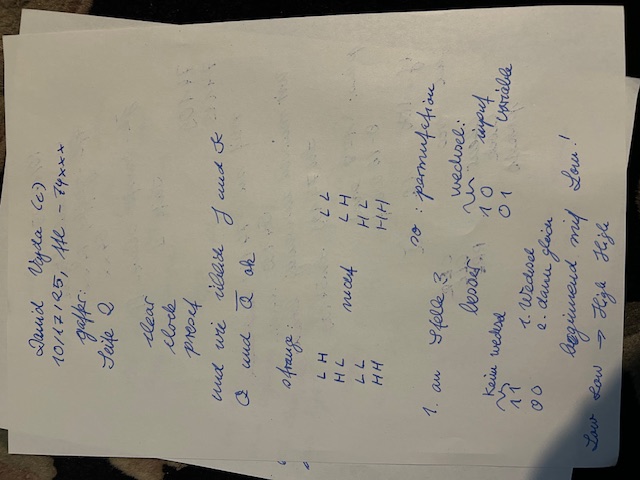 David Vajda (c)
10/12/25, ttl - 74xxx
Seite 2
clear
clock
preset
und wie üblich J und K
Q und Q̅ ok
strange:
L H
H L
L L
H H
nicht
L L
L H
H L
H H
1. an Stelle 3
so: permutation
Kein wechsel
1 1
0 0
wechsel:
1 0
0 1
input
variable
1. Wechsel
2. dann gleich
beginnend mit Low!
Low Low → High High